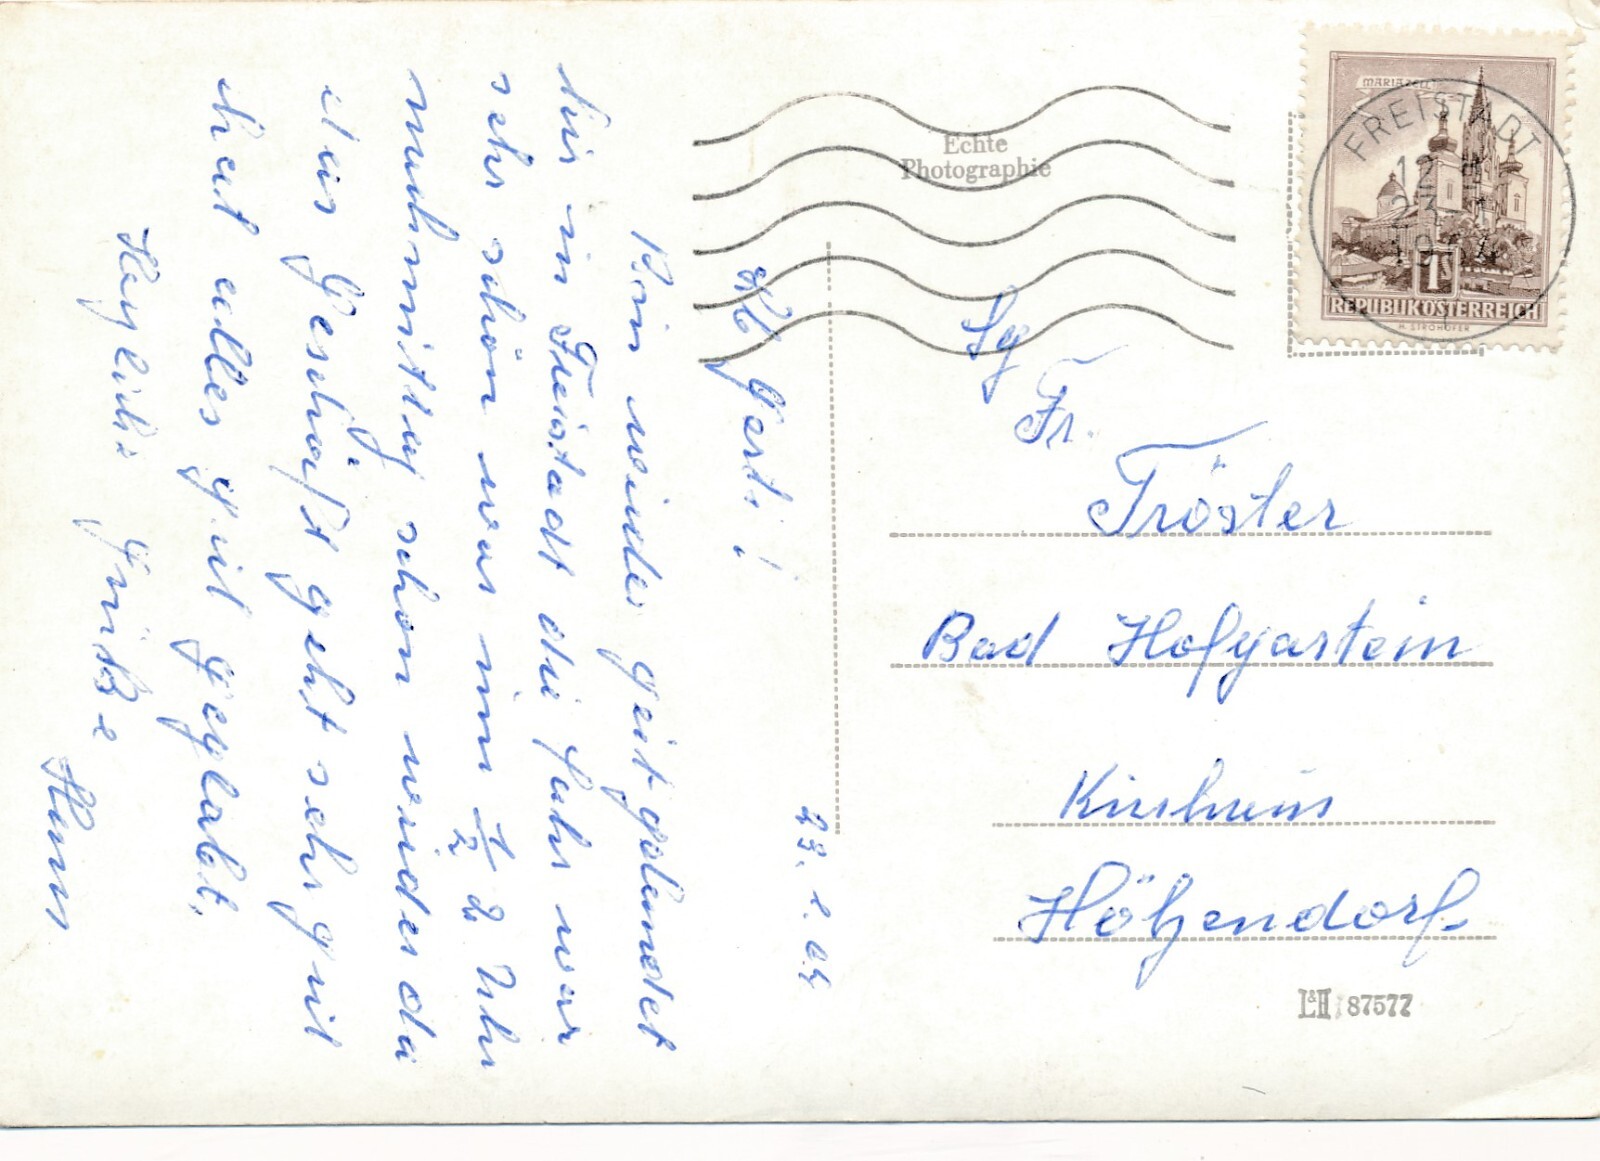 Kl Gerti!
23. 2. 64
Bin wieder gut gelandet
hir in Freistadt die fuhr war
sehr schön war um 1/2 2 Uhr
nachmittag schon wieder da
das Geschäft geht sehr gut
hat alles gut geglabt.
Herzliche Grüße
Hans
Echte
Photographie
MARIAZELL
FREISTADT
12
1
REPUBLIK ÖSTERREICH
H. STROHOFER
Sg
Fr.
Tröster
Bad Hofgastein
Kurhaus
Hötzendorf.
L&H 87577